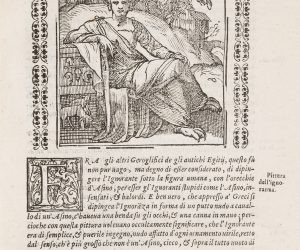 TRA gli altri Geroglifici de gli antichi Egitij, questo fù
non pur vago, ma degno di esser considerato, di dipin-
gere l'Ignorante sotto la figura humana, con l'orecchie
d'Asino, per esser gl'Ignoranti stupidi come l'Asino, insen-
sati, & balordi. E ben vero, che appresso a' Greci si
dipingea l'Ignoranza in forma di un putto nudo a caual-
lo di un'Asino, c'haueua una benda su gli occhi, & una canna in mano; per-
cioche con questa pittura uoleuano occultamente significare, che l'Ignorante
era di semplice, & puerile ingegno, nudo affatto d'ogni ornamento, priuo
del senso, che è più grosso che non è un'Asino, cieco, & sopra il tutto uoto di
Pittura
dell'igno-
ranza.